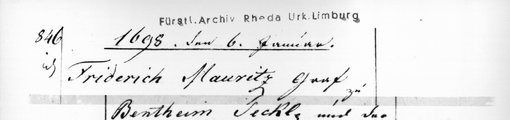 Fürstl. Archiv Rheda Urk. Limburg
846 1698. den 6. Januar.
Friderich Mauritz Graf zu
Bentheim Teckl. und der